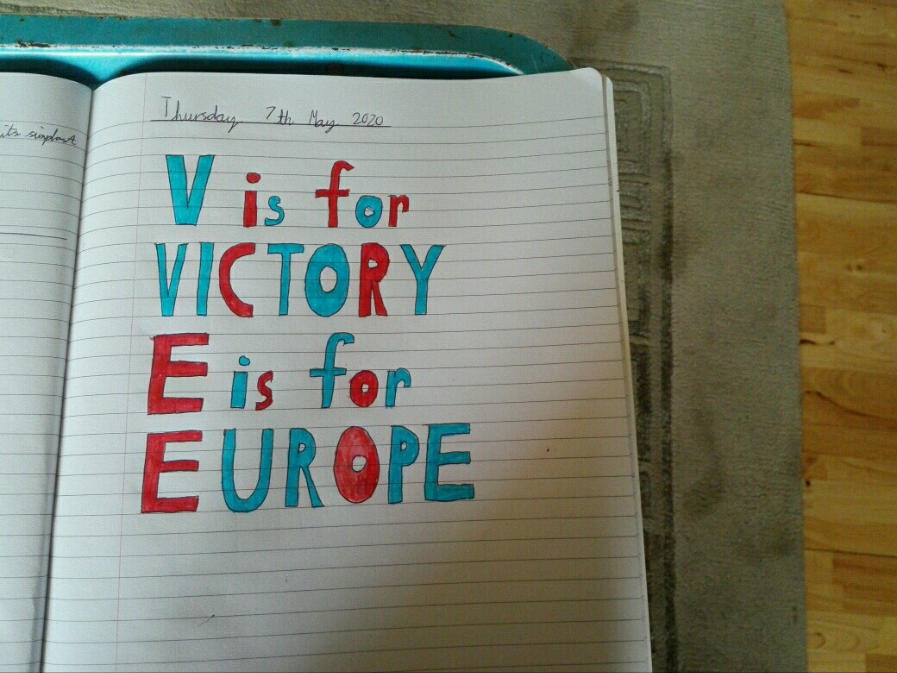 its simplest
Thursday 7th May 2020
V is for
VICTORY
E is for
E EUROPE